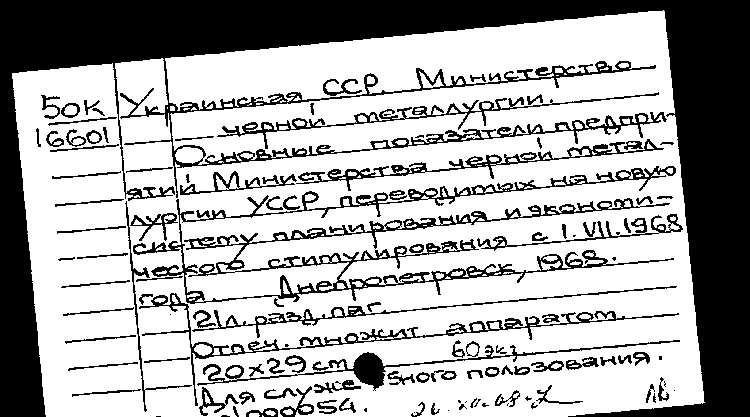 50К Украинская ССР. Министерство
16601 черной металлургии.
Основные показатели предпри-
ятий Министерства черной метал-
лургии УССР, переводимых на новую
систему планирования и экономи-
ческого стимулирования с 1.VII.1968
года. Днепропетровск, 1968.
21л. разд. паг.
Отпеч. множит аппаратом.
20x29 cm 60 экз.
Для служебного пользования.